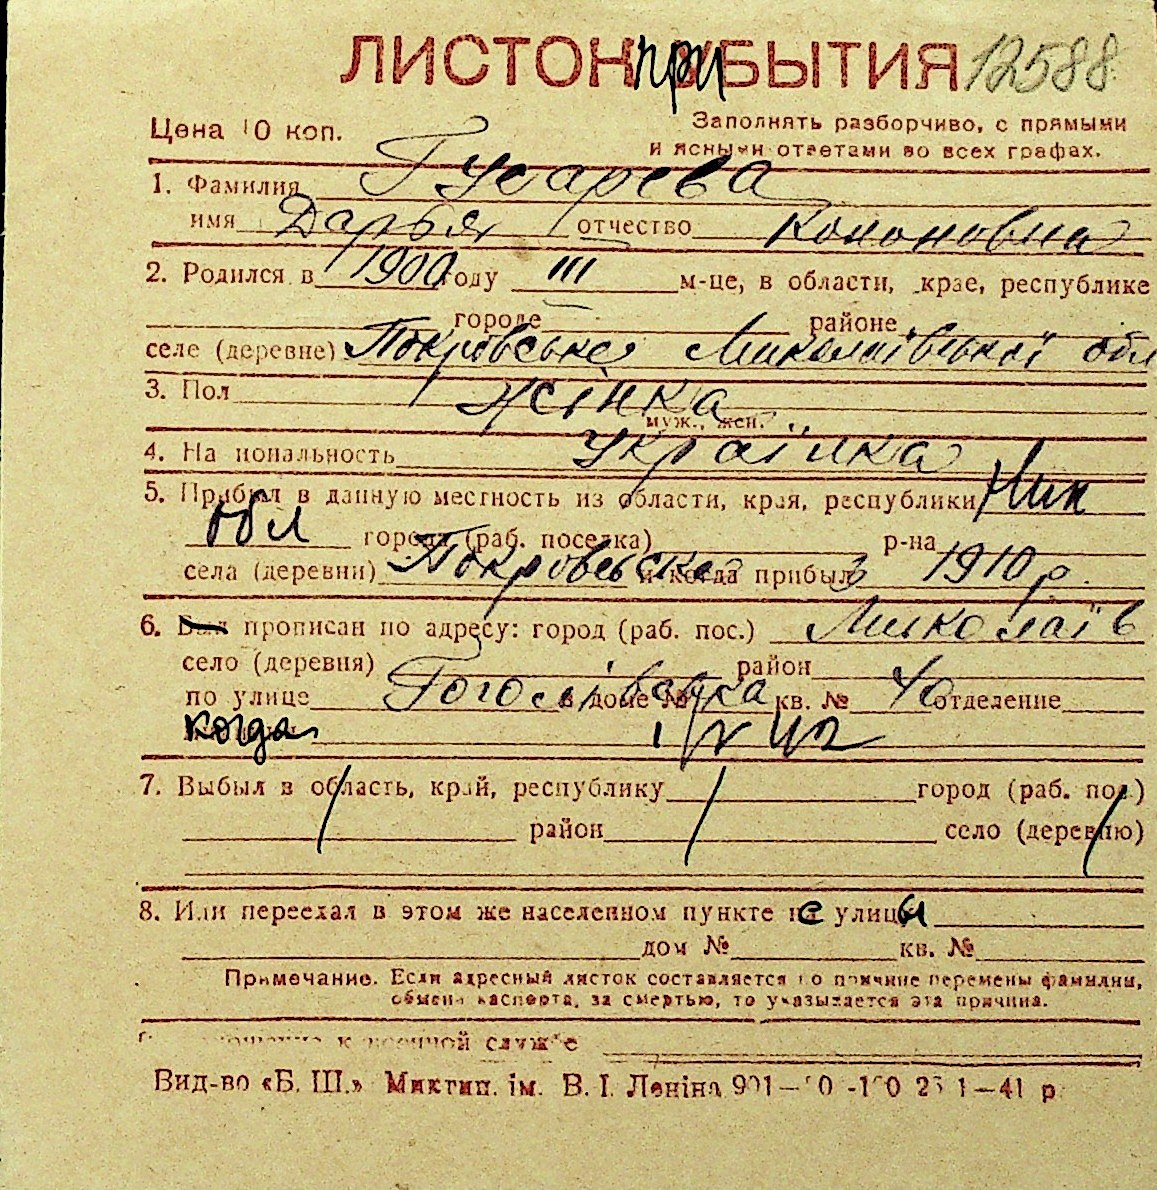 ЛИСТОК прибЫТИЯ 12588
Цена 10 коп.
Заполнять разборчиво, с прямыми
и ясными ответами во всех графах.
1. Фамилия Гусарева
имя Дарья отчество Кононовна
2. Родился в 1900 году III м-це, в области, крае, республике
городе районе
селе (деревне) Покровське Миколаївської обл
3. Пол жінка
муж., жен.
4. Национальность Українка
5. Прибыл в данную местность из области, края, республики Ник
обл города (раб. поселка) р-на
села (деревни) Покровське и когда прибыл з 1910 р.
6. Был прописан по адресу: город (раб. пос.) Миколаїв
село (деревня) район
по улице Гоголівська в доме № кв. № отделение
когда
7. Выбыл в область, край, республику город (раб. пос.)
район село (деревню)
8. Или переехал в этом же населенном пункте с улицы
дом № кв. №
Примечание. Если адресный листок составляется по причине перемены фамилии,
обмена паспорта, за смертью, то указывается эта причина.
к военной службе
Вид-во «Б. Ш.» Миктип. ім. В. І. Леніна 1—41 р